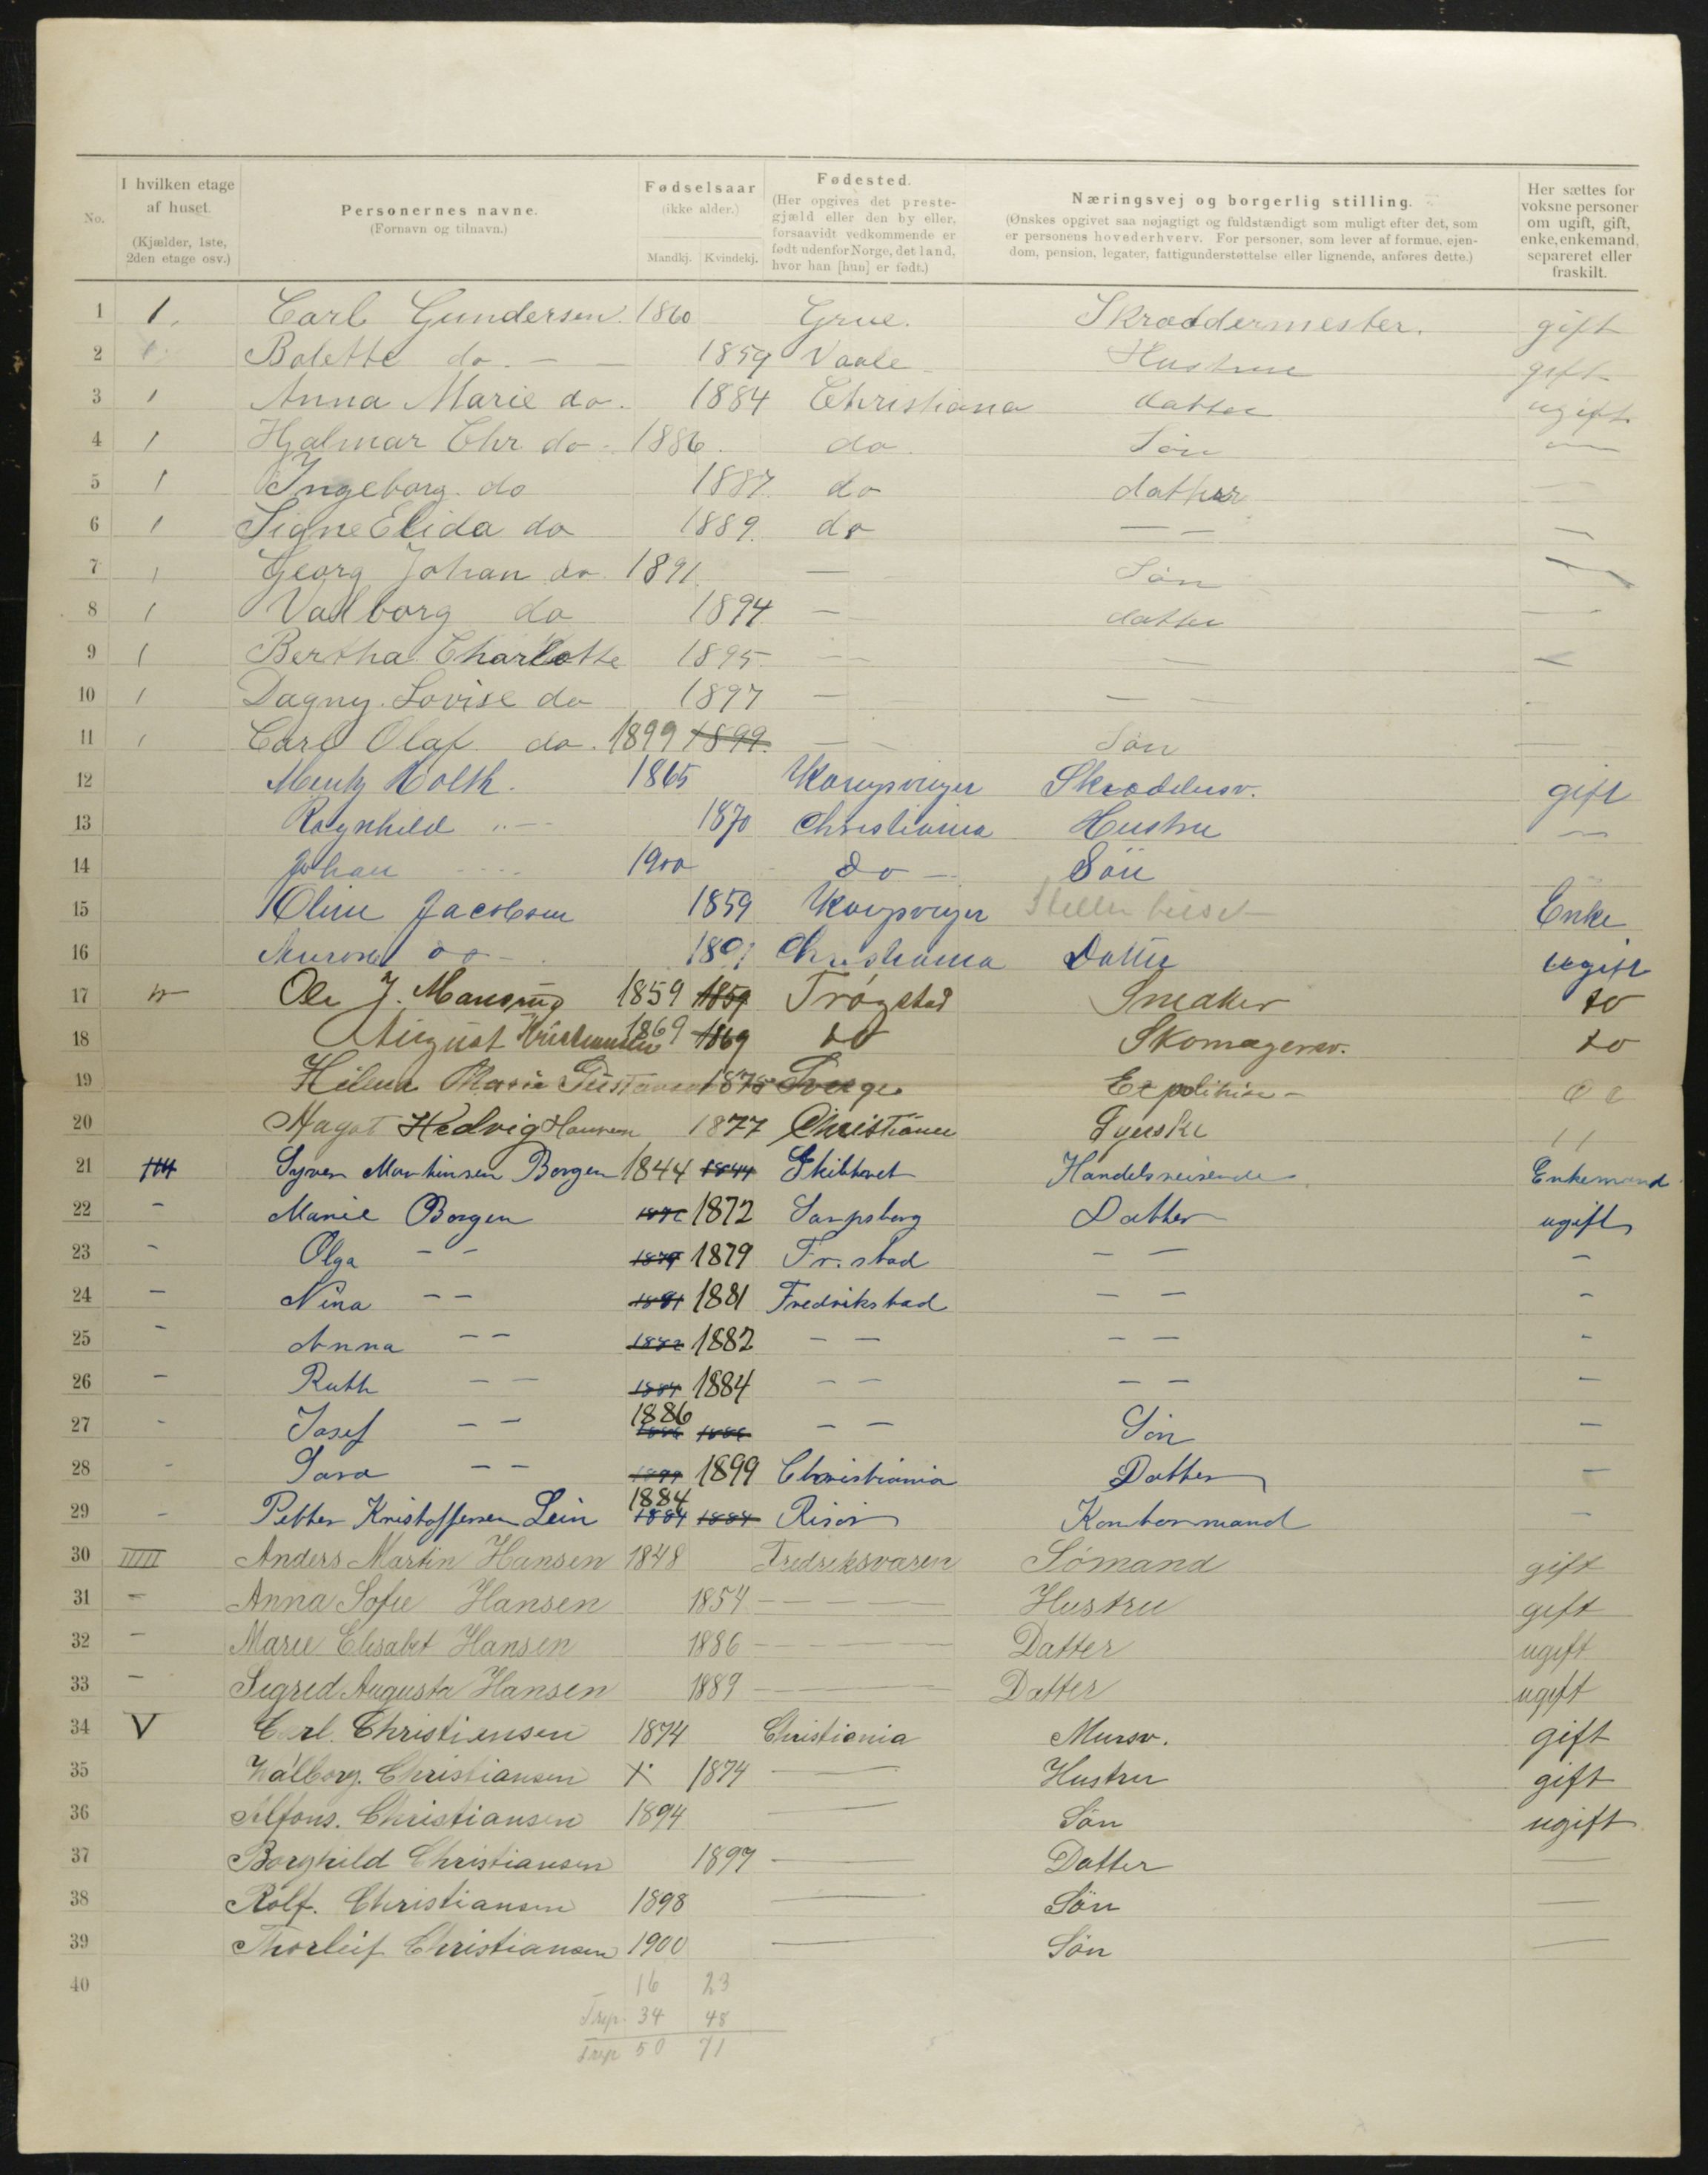 No.
I hvilken etage
af huset.
(Kjælder, 1ste,
2den etage osv.)
Personernes navne.
(Fornavn og tilnavn.)
Fødselsaar
(ikke alder.)
Mandkj. Kvindekj.
Fødested.
(Her opgives det preste-
gjæld eller den by eller,
forsaavidt vedkommende er
født udenfor Norge, det land,
hvor han [hun] er født.)
Næringsvej og borgerlig stilling.
(Ønskes opgivet saa nøjagtigt og fuldstændigt som muligt efter det, som
er personens hovederhverv. For personer, som lever af formue, ejen-
dom, pension, legater, fattigunderstøttelse eller lignende, anføres dette.)
Her sættes for
voksne personer
om ugift, gift,
enke, enkemand,
separeret eller
fraskilt.
1 1. Carl Gundersen. 1860 Grue. Skræddermester. gift
2 Bolette do. — — 1859 Vaale Hustrue gift
3 1 Anna Marie do. 1884 Christiana datter ugift
4 1 Hjalmar Chr do. 1886. do. Søn —
5 1 Ingeborg. do 1887. do datter —
6 1 Signe Elida do 1889. do — — —
7 1 Georg Johan do. 1891. — Søn —
8 1 Valborg do 1894 — datter —
9 1 Bertha Charlotte 1895. — — —
10 1 Dagny. Lovise do 1897 — — —
11 1 Carl Olaf. do. 1899 1899. — Søn —
12 Holth. 1865 Kongsvinger Skræddersv. gift
13 Ragnhild „ — 1870 Christiania Hustru —
14 Johan 1900 do — Sön
15 Oline Jacobsen 1859 Kongsvinger Enke
16 do — Christiania Datter ugift
17 Ole J. 1859 1859 Trøgstad Snedker do
18 August Kristiansen 1869 1869 do Skomagersv. do
19 Hilma Maria 1875 Sverge
20 Magot Hedvig Hansen 1877 Christiania Syerske 11
21 Syver Martinsen Borgen 1844 1844 Skibtvet Handelsreisende Enkemand
22 — Marie Borgen 1872 1872 Sarpsborg Datter ugift
23 — Olga — — 1879 1879 Fr. stad — — —
24 — Nina — — 1881 1881 Fredrikstad — — —
25 — Anna — — 1882 1882 — — — — —
26 — Ruth — — 1884 1884 — — — — —
27 — Josef — — 1886 1886 1886 — — Søn —
28 — Sara — — 1899 1899 Christiania Datter —
29 — Petter Kristoffersen Lein 1884 1884 1884 Risör Kontormand —
30 IIIII Anders Martin Hansen 1848 Fredriksværen Sömand gift
31 — Anna Sofie Hansen 1854 — — — — Hustru gift
32 — Marie Elisabet Hansen 1886 — — — — Datter ugift
33 — Sigred Augusta Hansen 1889 — — — — Datter ugift
34 V Carl. Christiansen 1874 Christiania Mursv. gift
35 Walborg. Christiansen X 1874 — Hustru gift
36 Alfons. Christiansen 1894 — Søn ugift
37 Borghild Christiansen 1897 — Datter —
38 Rolf. Christiansen 1898 — Søn —
39 Thorleif Christiansen 1900 — Søn —
40 16 23
34 48
50 71